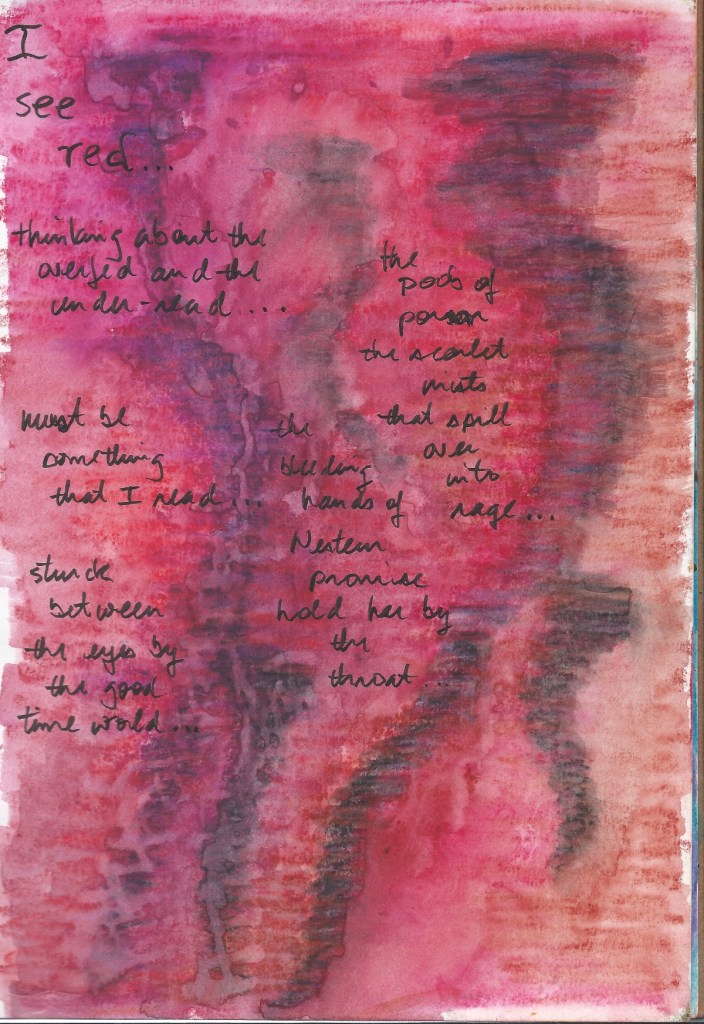 I
see
red...
thinking about the
overfed and the
under-read....
must be
something
that I read...
stuck
between
the eyes by
the good
time world...
the
bleeding
hands of
Western
promise
hold her by
the
throat...
the
pods of
poison
the scarlet
mists
that spill
over
into
rage...